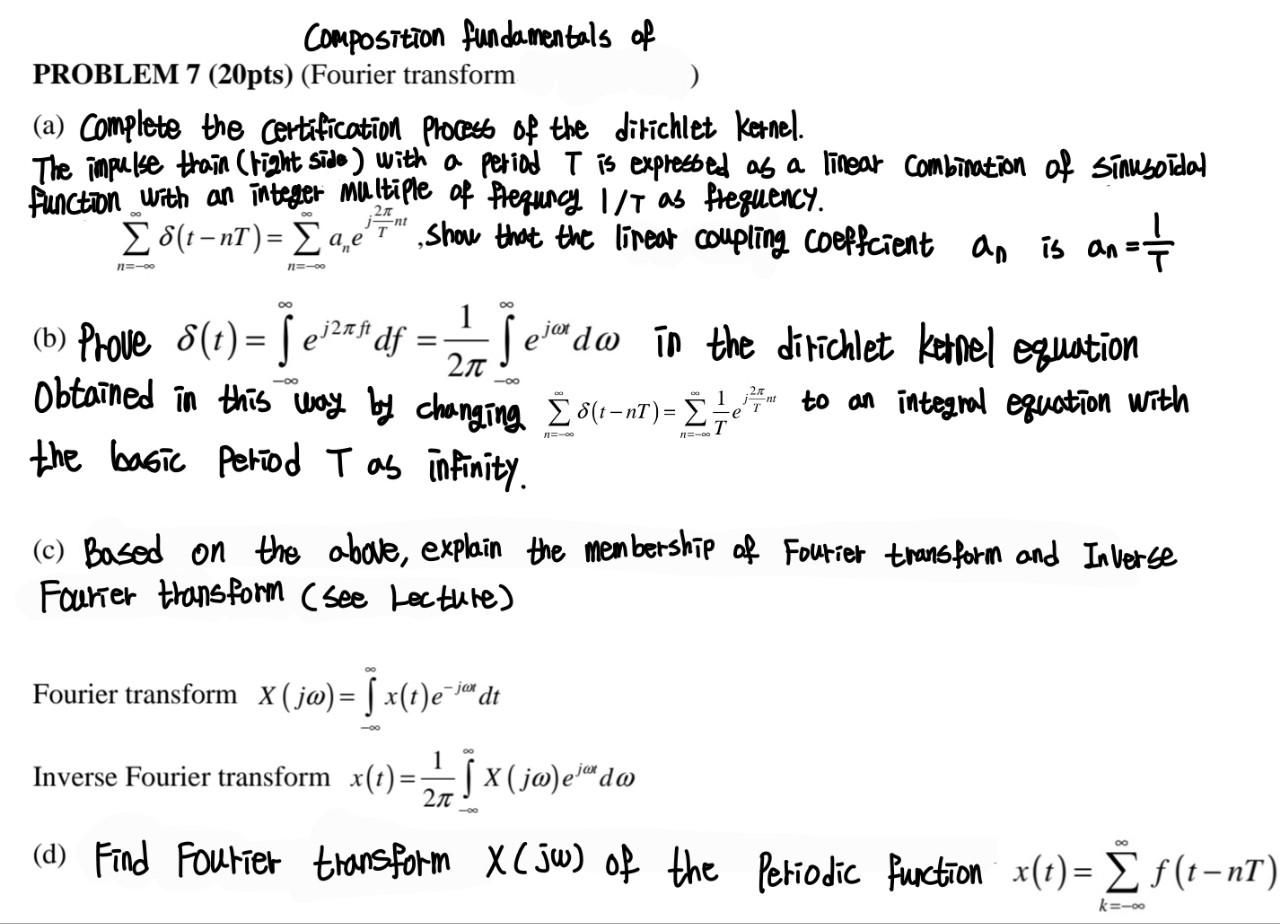 Composition fundamentals of
PROBLEM 7 (20pts) (Fourier transform )
(a) Complete the certification process of the dirichlet kernel.
The impulse train (right side) with a period T is expressed as a linear combination of sinusoidal
function with an integer multiple of freguncy 1/T as freguency.
\sum_{n=-\infty}^{\infty} \delta(t-nT) = \sum_{n=-\infty}^{\infty} a_n e^{j\frac{2\pi}{T}nt} , Show that the linear coupling coeffcient a_n is a_n = \frac{1}{T}
(b) Prove \delta(t) = \int_{-\infty}^{\infty} e^{j2\pi ft} df = \frac{1}{2\pi} \int_{-\infty}^{\infty} e^{j\omega t} d\omega in the dirichlet kernel equation
Obtained in this way by changing \sum_{n=-\infty}^{\infty} \delta(t-nT) = \sum_{n=-\infty}^{\infty} \frac{1}{T} e^{j\frac{2\pi}{T}nt} to an integral equation with
the basic period T as infinity.
(c) Based on the above, explain the membership of Fourier transform and Inverse
Fourier transform (see Lecture)
Fourier transform X(j\omega) = \int_{-\infty}^{\infty} x(t)e^{-j\omega t} dt
Inverse Fourier transform x(t) = \frac{1}{2\pi} \int_{-\infty}^{\infty} X(j\omega)e^{j\omega t} d\omega
(d) Find Fourier transform X(jw) of the Periodic function x(t) = \sum_{k=-\infty}^{\infty} f(t-nT)